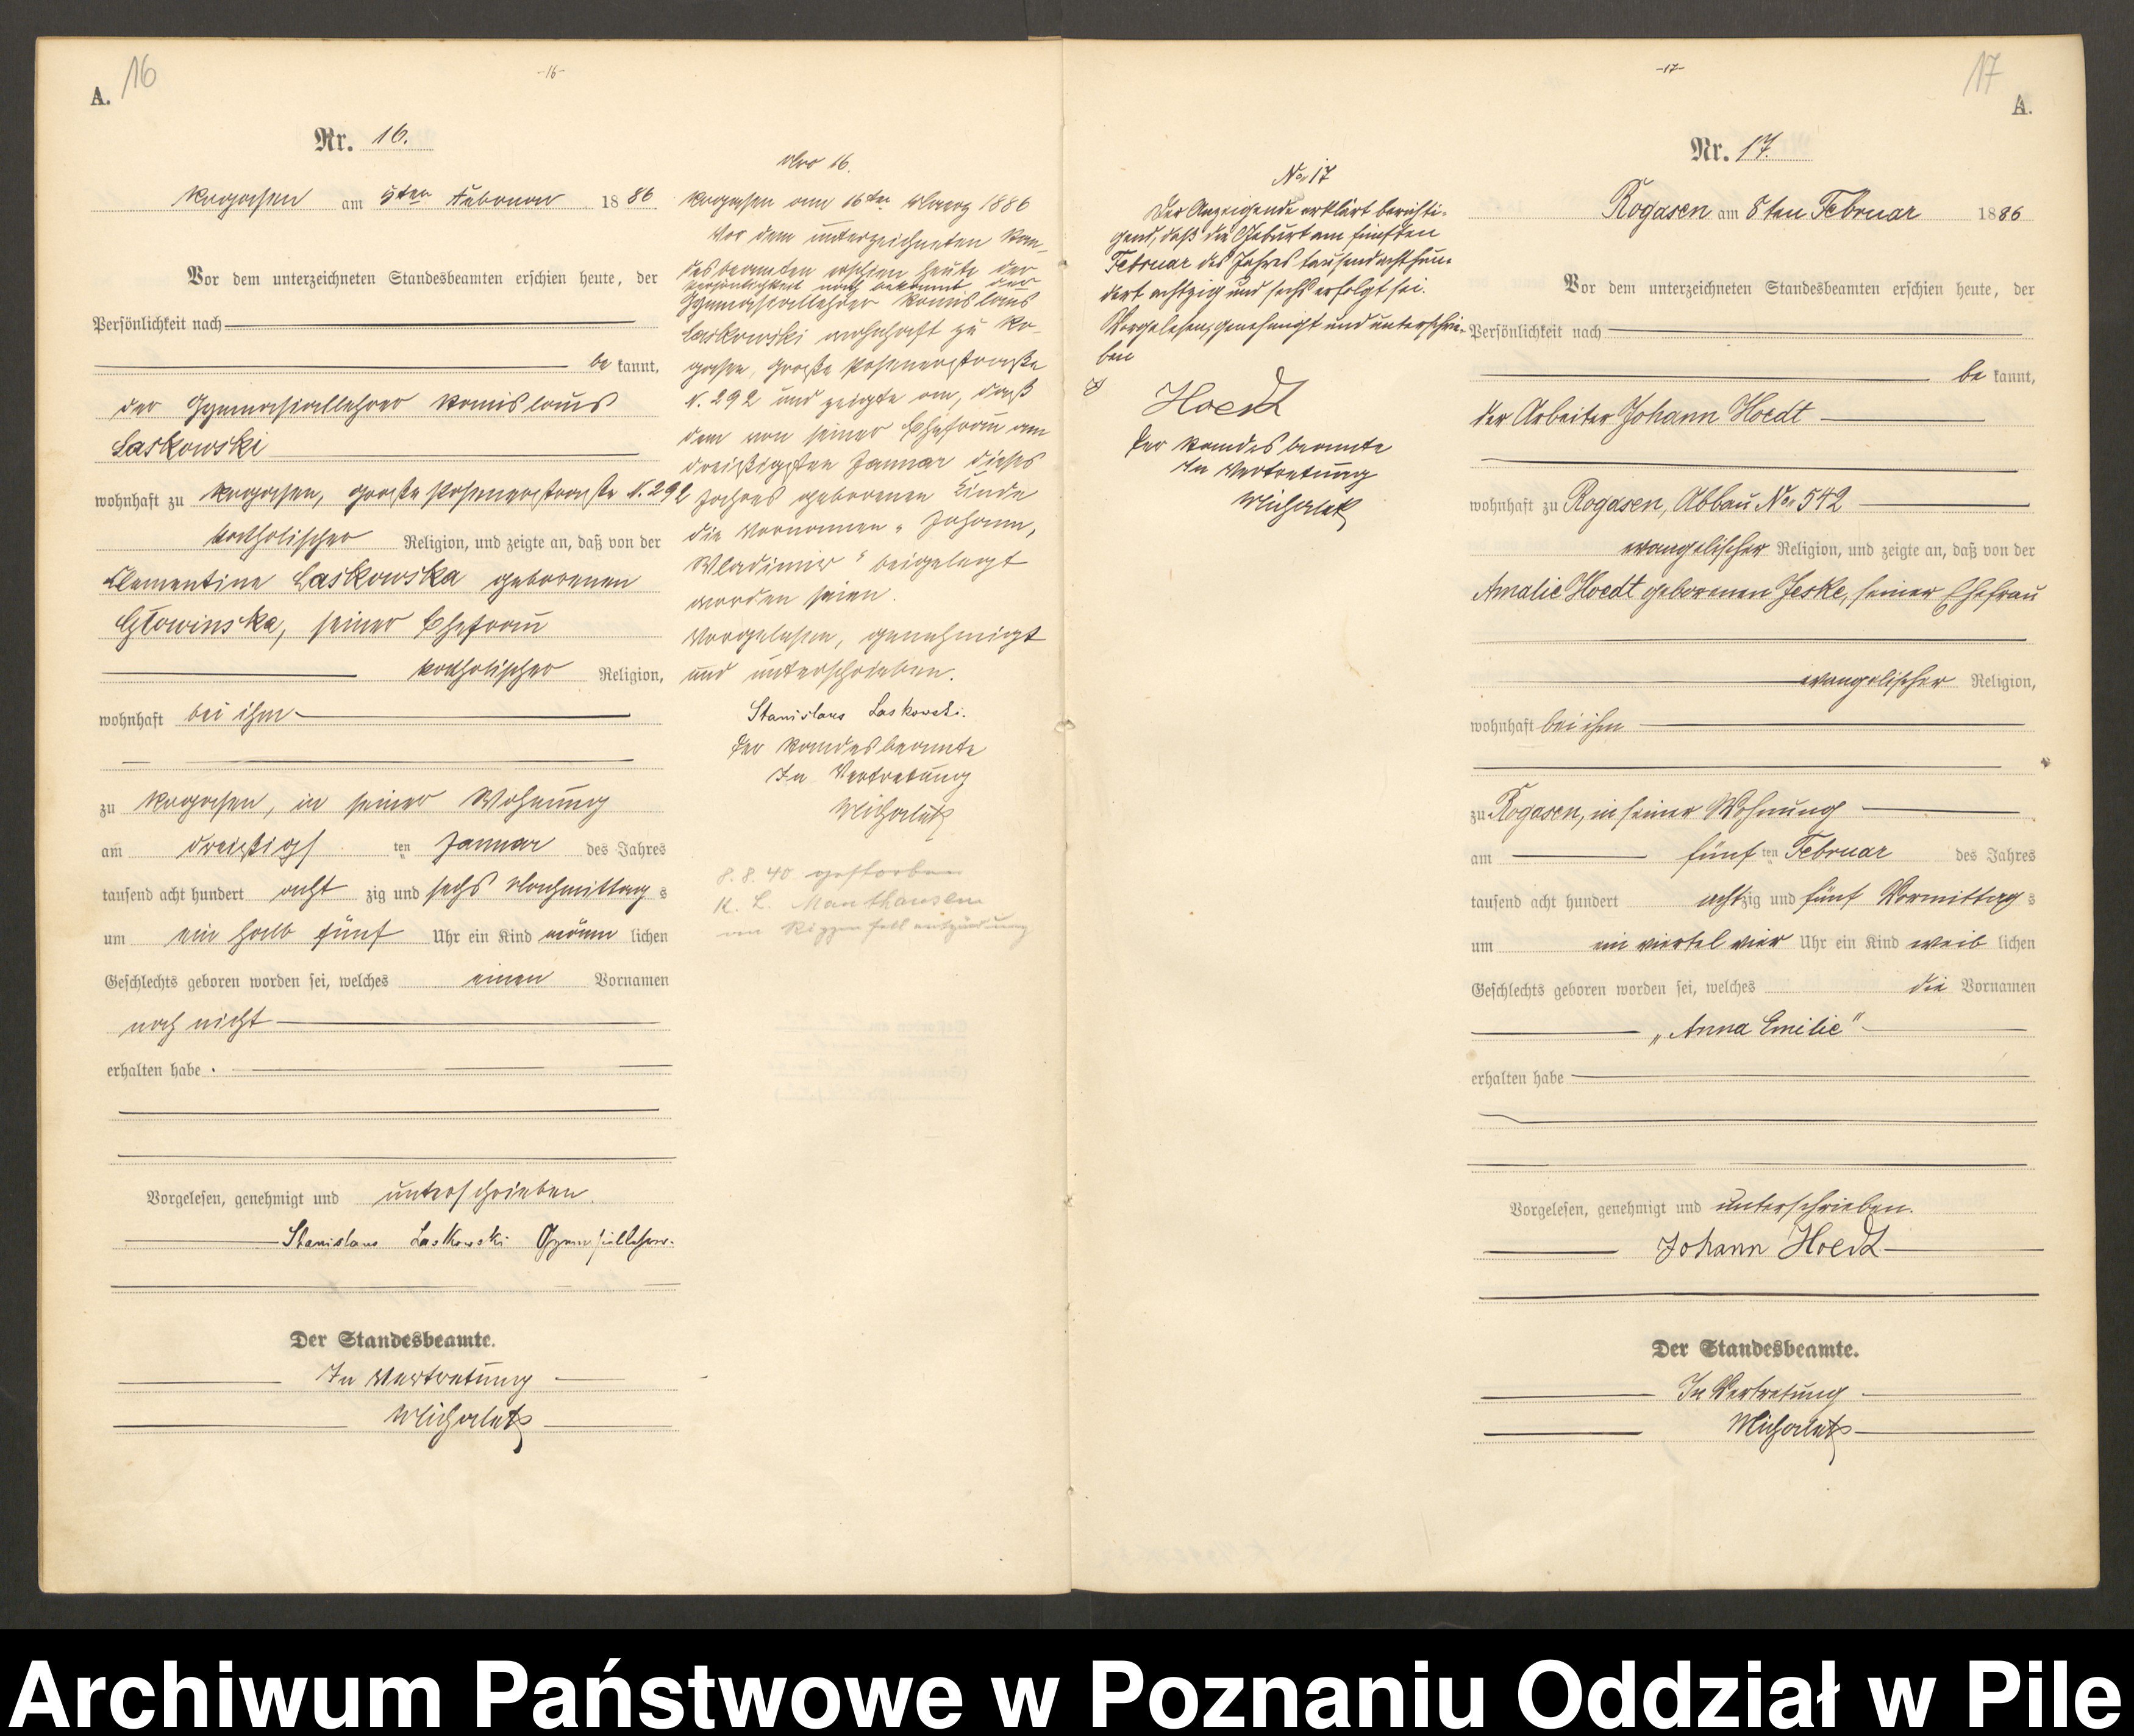 16
-16-
A.
Nr. 16.
Rogasen am 5ten Februar 1886
Vor dem unterzeichneten Standesbeamten erschien heute, der
Persönlichkeit nach
be kannt,
der Gymnasiallehrer Stanislaus
Laskowski
wohnhaft zu Rogasen, große Posenerstraße N. 292
katholischer Religion, und zeigte an, daß von der
Clementine Laskowska geborenen
Głowinska, seiner Ehefrau
katholischer Religion,
wohnhaft bei ihm
zu Rogasen, in seiner Wohnung
am dreißigs ten Januar des Jahres
tausend acht hundert acht zig und sechs Nachmittag s
um ein halb fünf Uhr ein Kind männ lichen
Geschlechts geboren worden sei, welches einen Vornamen
noch nicht
erhalten habe.
Vorgelesen, genehmigt und unterschrieben.
Stanislaus Laskowski Gymnasiallehrer.
Der Standesbeamte.
In Vertretung
Michalak
Nro 16.
Rogasen am 16ten Maerz 1886
Vor dem unterzeichneten Stan-
desbeamten erschien heute der
Persönlichkeit nach bekannt der
Gymnasiallehrer Stanislaus
Laskowski wohnhaft zu Ro-
gasen, große Posenerstraße
N. 292 und zeigte an, daß
dem von seiner Ehefrau am
dreißigsten Januar dieses
Jahres geborenen Kinde
die Vornamen „Johann,
Wladimir" beigelegt
worden seien.
Vorgelesen, genehmigt
und unterschrieben.
Stanislaus Laskowski.
Der Standesbeamte
In Vertretung
Michalak
8. 8. 40 gestorben
K. L. Mauthausen
an Rippenfellentzündung
-17-
17
A.
No 17
Der Anzeigende erklärt berichti-
gend, daß die Geburt am fünften
Februar des Jahres tausend acht hun-
dert achtzig und sechs erfolgt sei.
Vorgelesen, genehmigt und unterschrie-
ben
Hoedt
Der Standesbeamte
In Vertretung
Michalak
Nr. 17.
Rogasen am 8ten Februar 1886
Vor dem unterzeichneten Standesbeamten erschien heute, der
Persönlichkeit nach
be kannt,
der Arbeiter Johann Hoedt
wohnhaft zu Rogasen, Abbau No 542
evangelischer Religion, und zeigte an, daß von der
Amalie Hoedt geborenen Jeske, seiner Ehefrau
evangelischer Religion,
wohnhaft bei ihm
zu Rogasen, in seiner Wohnung
am fünf ten Februar des Jahres
tausend acht hundert acht zig und fünf Vormittag s
um ein viertel vier Uhr ein Kind weib lichen
Geschlechts geboren worden sei, welches die Vornamen
„Anna Emilie"
erhalten habe
Vorgelesen, genehmigt und unterschrieben.
Johann Hoedt
Der Standesbeamte.
In Vertretung
Michalak
Archiwum Państwowe w Poznaniu Oddział w Pile